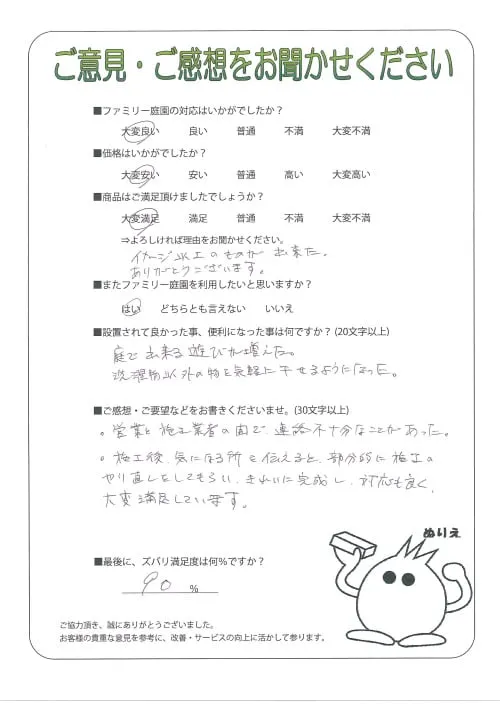 ご意見・ご感想をお聞かせください
■ファミリー庭園の対応はいかがでしたか？
大変良い 良い 普通 不満 大変不満
■価格はいかがでしたか？
大変安い 安い 普通 高い 大変高い
■商品はご満足頂けましたでしょうか？
大変満足 満足 普通 不満 大変不満
⇒よろしければ理由をお聞かせください。
イメージ以上のものが出来た。
ありがとうございます。
■またファミリー庭園を利用したいと思いますか？
はい どちらとも言えない いいえ
■設置されて良かった事、便利になった事は何ですか？(20文字以上)
庭で出来る遊びが増えた。
洗濯物以外の物も気軽に干せるようになった。
■ご感想・ご要望などをお書きくださいませ。(30文字以上)
。営業と施工業者の間で、連絡不十分なことがあった。
。施工後、気になる所を伝えると、部分的に施工の
やり直しをしてもらい、きれいに完成し、対応も良く、
大変満足しています。
ぬりえ
■最後に、ズバリ満足度は何％ですか？
90 ％
ご協力頂き、誠にありがとうございました。
お客様の貴重な意見を参考に、改善・サービスの向上に活かして参ります。